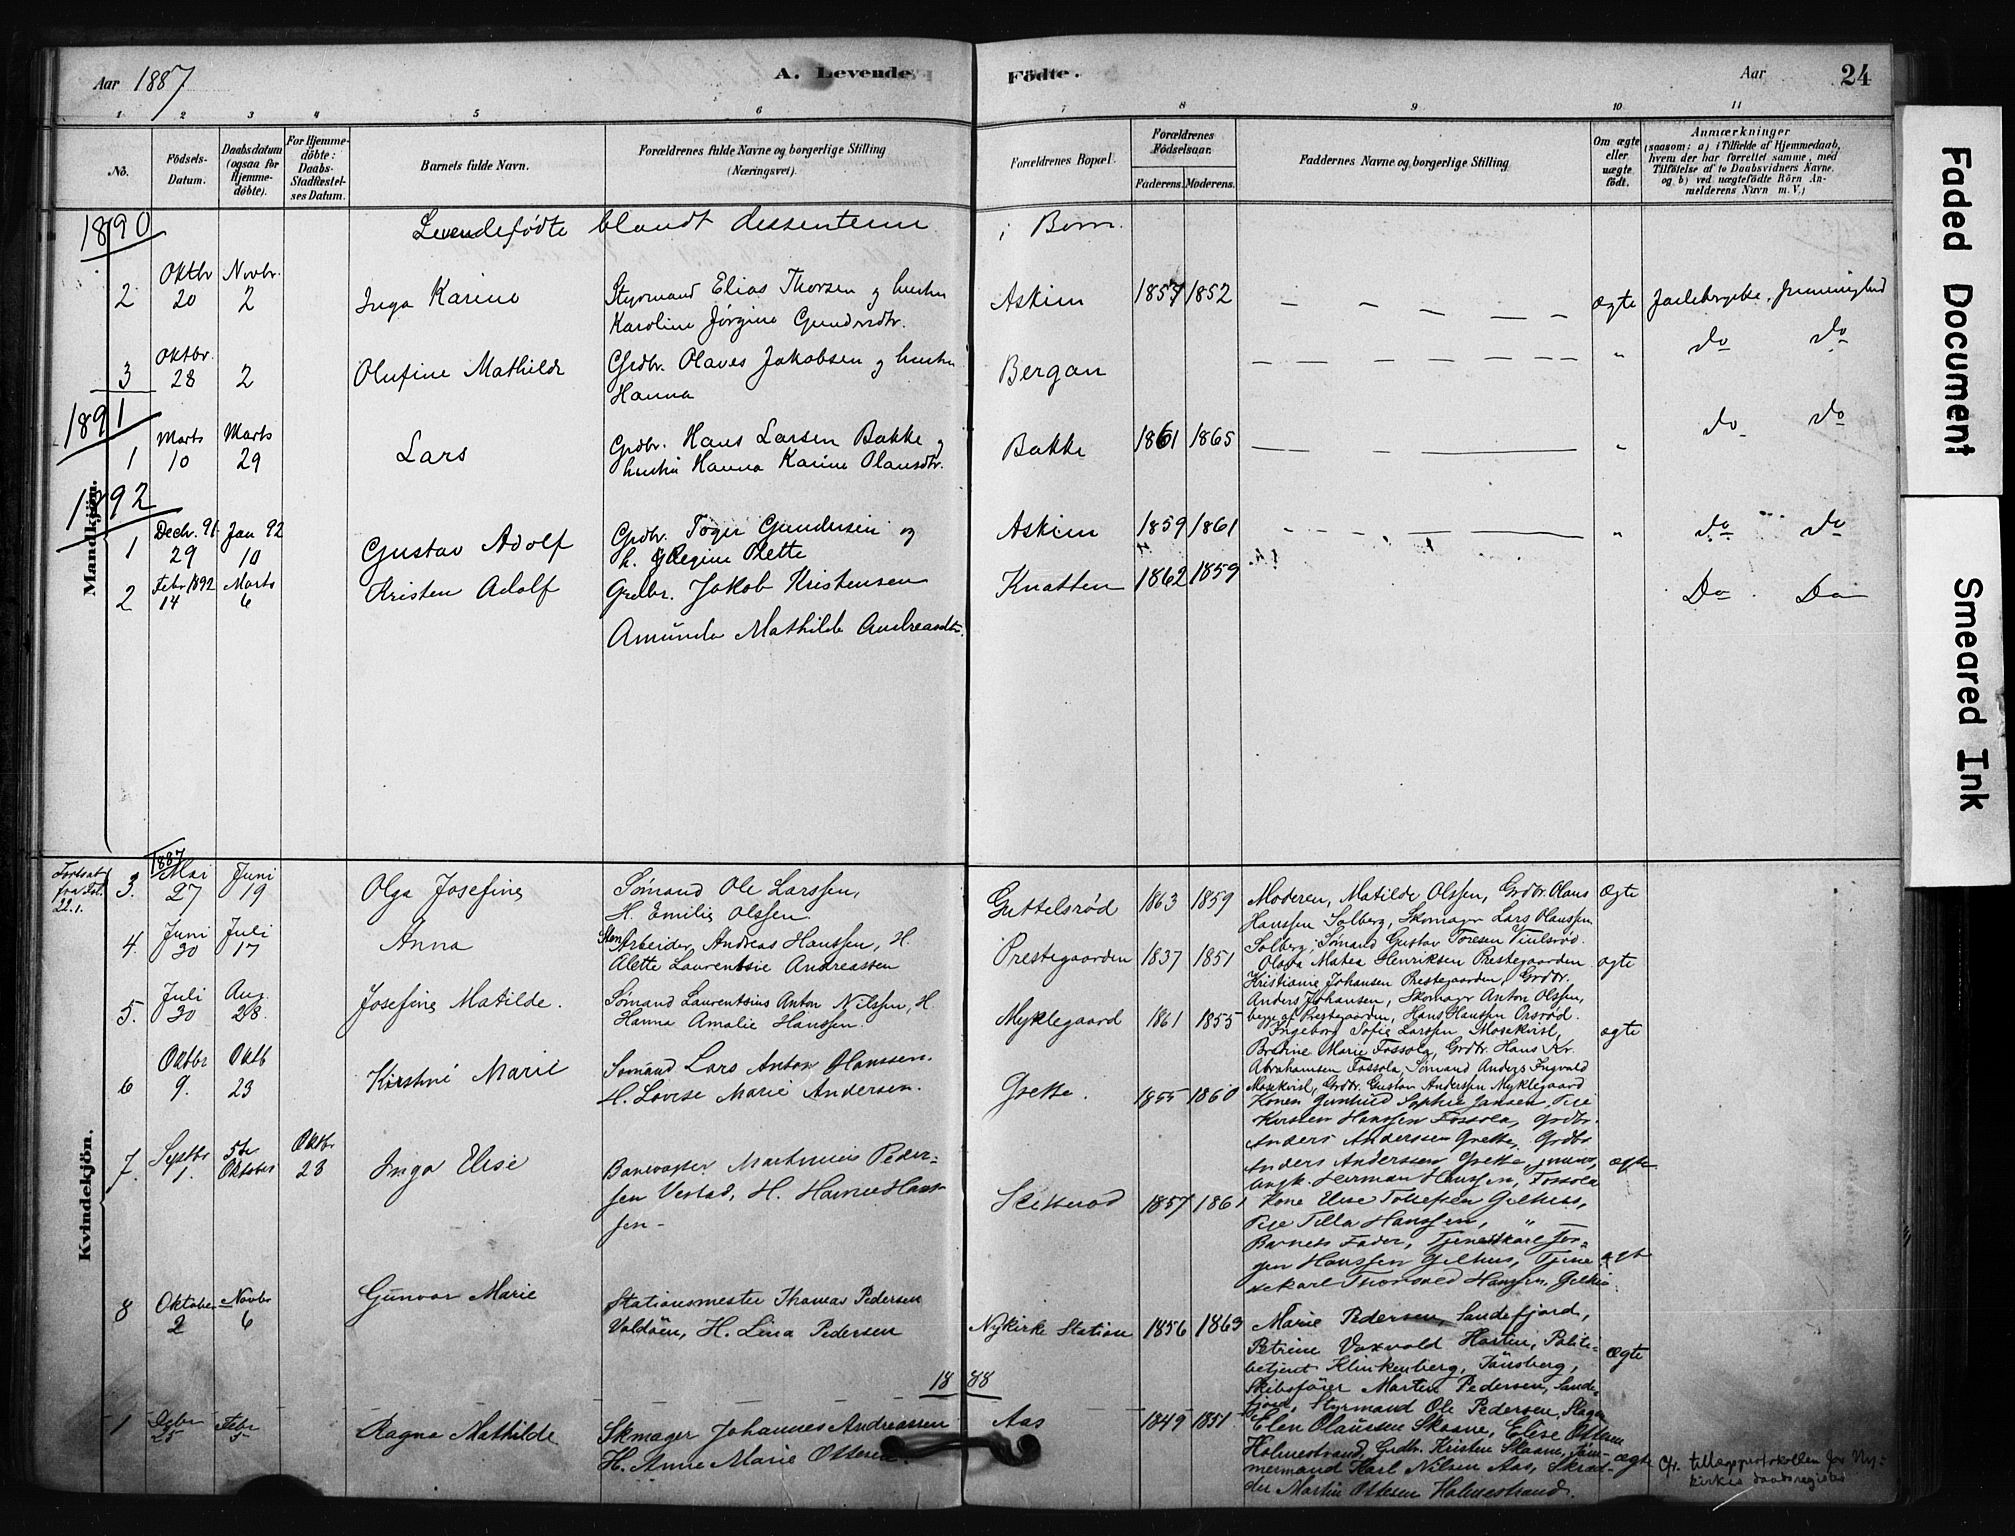 Aar 1887 A. Levende Födte. Aar 24
1 2 3 4 5 6 7 8 9 10 11
No.
Födsels-
Datum.
Daabsdatum
(ogsaa for
Hjemme-
döbte).
For Hjemme-
döbte:
Daabs-
Stadfæstel-
ses Datum.
Barnets fulde Navn.
Forældrenes fulde Navne og borgerlige Stilling
(Næringsvei).
Forældrenes Bopæl.
Forældrenes
Födselsaar.
Faderens. Moderens.
Faddernes Navne og borgerlige Stilling
Om ægte
eller
uægte
födt.
Anmærkninger
(saasom: a) i Tilfælde af Hjemmedaab,
hvem der har forrettet samme, med
Tilföielse af to Daabsvidners Navne,
og b) ved uægtefödte Börn An-
melderens Navn m. V.)
Mandkjön.
1890
Levendefødte blandt dissenterne i Borre.
2 Oktbr 20 Novbr. 2 Inga Karine
Styrmand Elias Thorsen og hustru
Karoline Jørgine Gundersdtr.
Askim 1857 1852 ægte
3 Oktbr. 28 2 Olufine Mathilde
Grdbr. Olaves Jakobsen og hustru
Hanna
Bergan " do do
1891
1 Marts 10 Marts 29 Lars
Grdbr. Hans Larsen Bakke og
hustru Hanna Karine Olausdtr.
Bakke 1861 1865 " do do
1892
1 Decbr. 91 29 Jan 92 10 Gustav Adolf
Grdbr. Toger Gundersen og
h. Regine Olette
Askim 1859 1861 " do do
2 Febr 1892 14 Marts 6 Kristen Adolf
Grdbr. Jakob Kristensen
Amunda Mathilde Andreasdtr.
Knatten 1862 1859 Do Do
Kvindekjön.
Fortsat
fra fol.
22.1.
1887
3. Mai 27 Juni 19 Olga Josefine
Sømand Ole Larssen,
H. Emilie Olssen.
Guttelsrød 1863 1859
Moderen, Matilde Olssen, Grdbr. Olaus
Hanssen Solberg, Skomagr Lars Olaussen
Solberg, Sømand Gustav Toresen
Ægte
4. Juni 30 Juli 17 Anna
Sten Arbeider Andreas Hanssen, H.
Alette Laurentsie Andreassen
Prestegaarden 1837 1851
Olava Matea Henriksen Prestegaarden
Kristiane Johansen Prestegaarden, Grdbr.
Anders Johansen, Skomagr Anton Olssen,
begge af Prestegaarden, Hans Hanssen Orsrød.
ægte
5. Juli 30 Aug. 28. Josefine Matilde.
Sømand Laurentsius Anton Nilssen, H.
Hanna Amalie Hanssen.
Myklegaard 1861 1855
Ingeborg Sofie Larssen, Mosekvisl,
Bredine Marie Fossola, Grdbr. Hans Kr.
Abrahamsen Fossola, Sømand Anders Ingvald
Mosekvisl, Grdbr. Gustav Anderssen Myklegaard
ægte
6 Oktbr 9. Oktb 23 Kirstine Marie
Sømand Lars Anton Olaussen.
H. Lovise Marie Andersen.
Grette. 1855 1860
Konen Gunhild Sophie Jansen, Pige
Kirsten Hanssen Fossola, Grdbr.
Anders Anderssen Grette, Grdbr
Anders Anderssen Grette, junior,
Ungk. Herman Hanssen, Fossola
ægte
7. Septbr 1. 5te Oktober Oktbr 23 Inga Elise
Banevogter Martinius Peder-
sen Vestad, H. Hanne Hans-
sen-
1857 1861
Kone Elise Tollefsen Gilhus,
Pige Tilla Hanssen, " —
Barnets Fader, Tjenestkarl Jør-
gen Hanssen Gilhus, Tjene-
stekarl Thorvald Hanssen, Gilhus.
ægte
8 Oktober 2 Novbr 6 Gunvor Marie
Stationsmester Thomas Pedersen
Valdöen, H. Lina Pedersen
Nykirke Station 1856 1863
Marie Pedersen, Sandefjord,
Petrine Voxvold Horten, Politi-
betjent Klinkenberg, Tönsberg,
Skibsfører Martin Pedersen, Sande-
fjord, Styrmand Ole Pedersen, Slagen
Ægte
18 88
1 Debr 25 Febr 5 Ragna Mathilde
Skmager Johannes Andreassen
H. Anne Marie Ottesen.
Aas 1849 1851
Elen Olaussen Skaane, Elise Ottesen
Holmestrand, Grdb. Kristen Skaane, Töm-
mermand Karl Nilsen Aas, Skræd-
der Martin Ottesen Holmestrand.
ægte
Cfr. tillægsprotokollen for Ny-
kirkes daabsregister
Faded Document
Smeared Ink